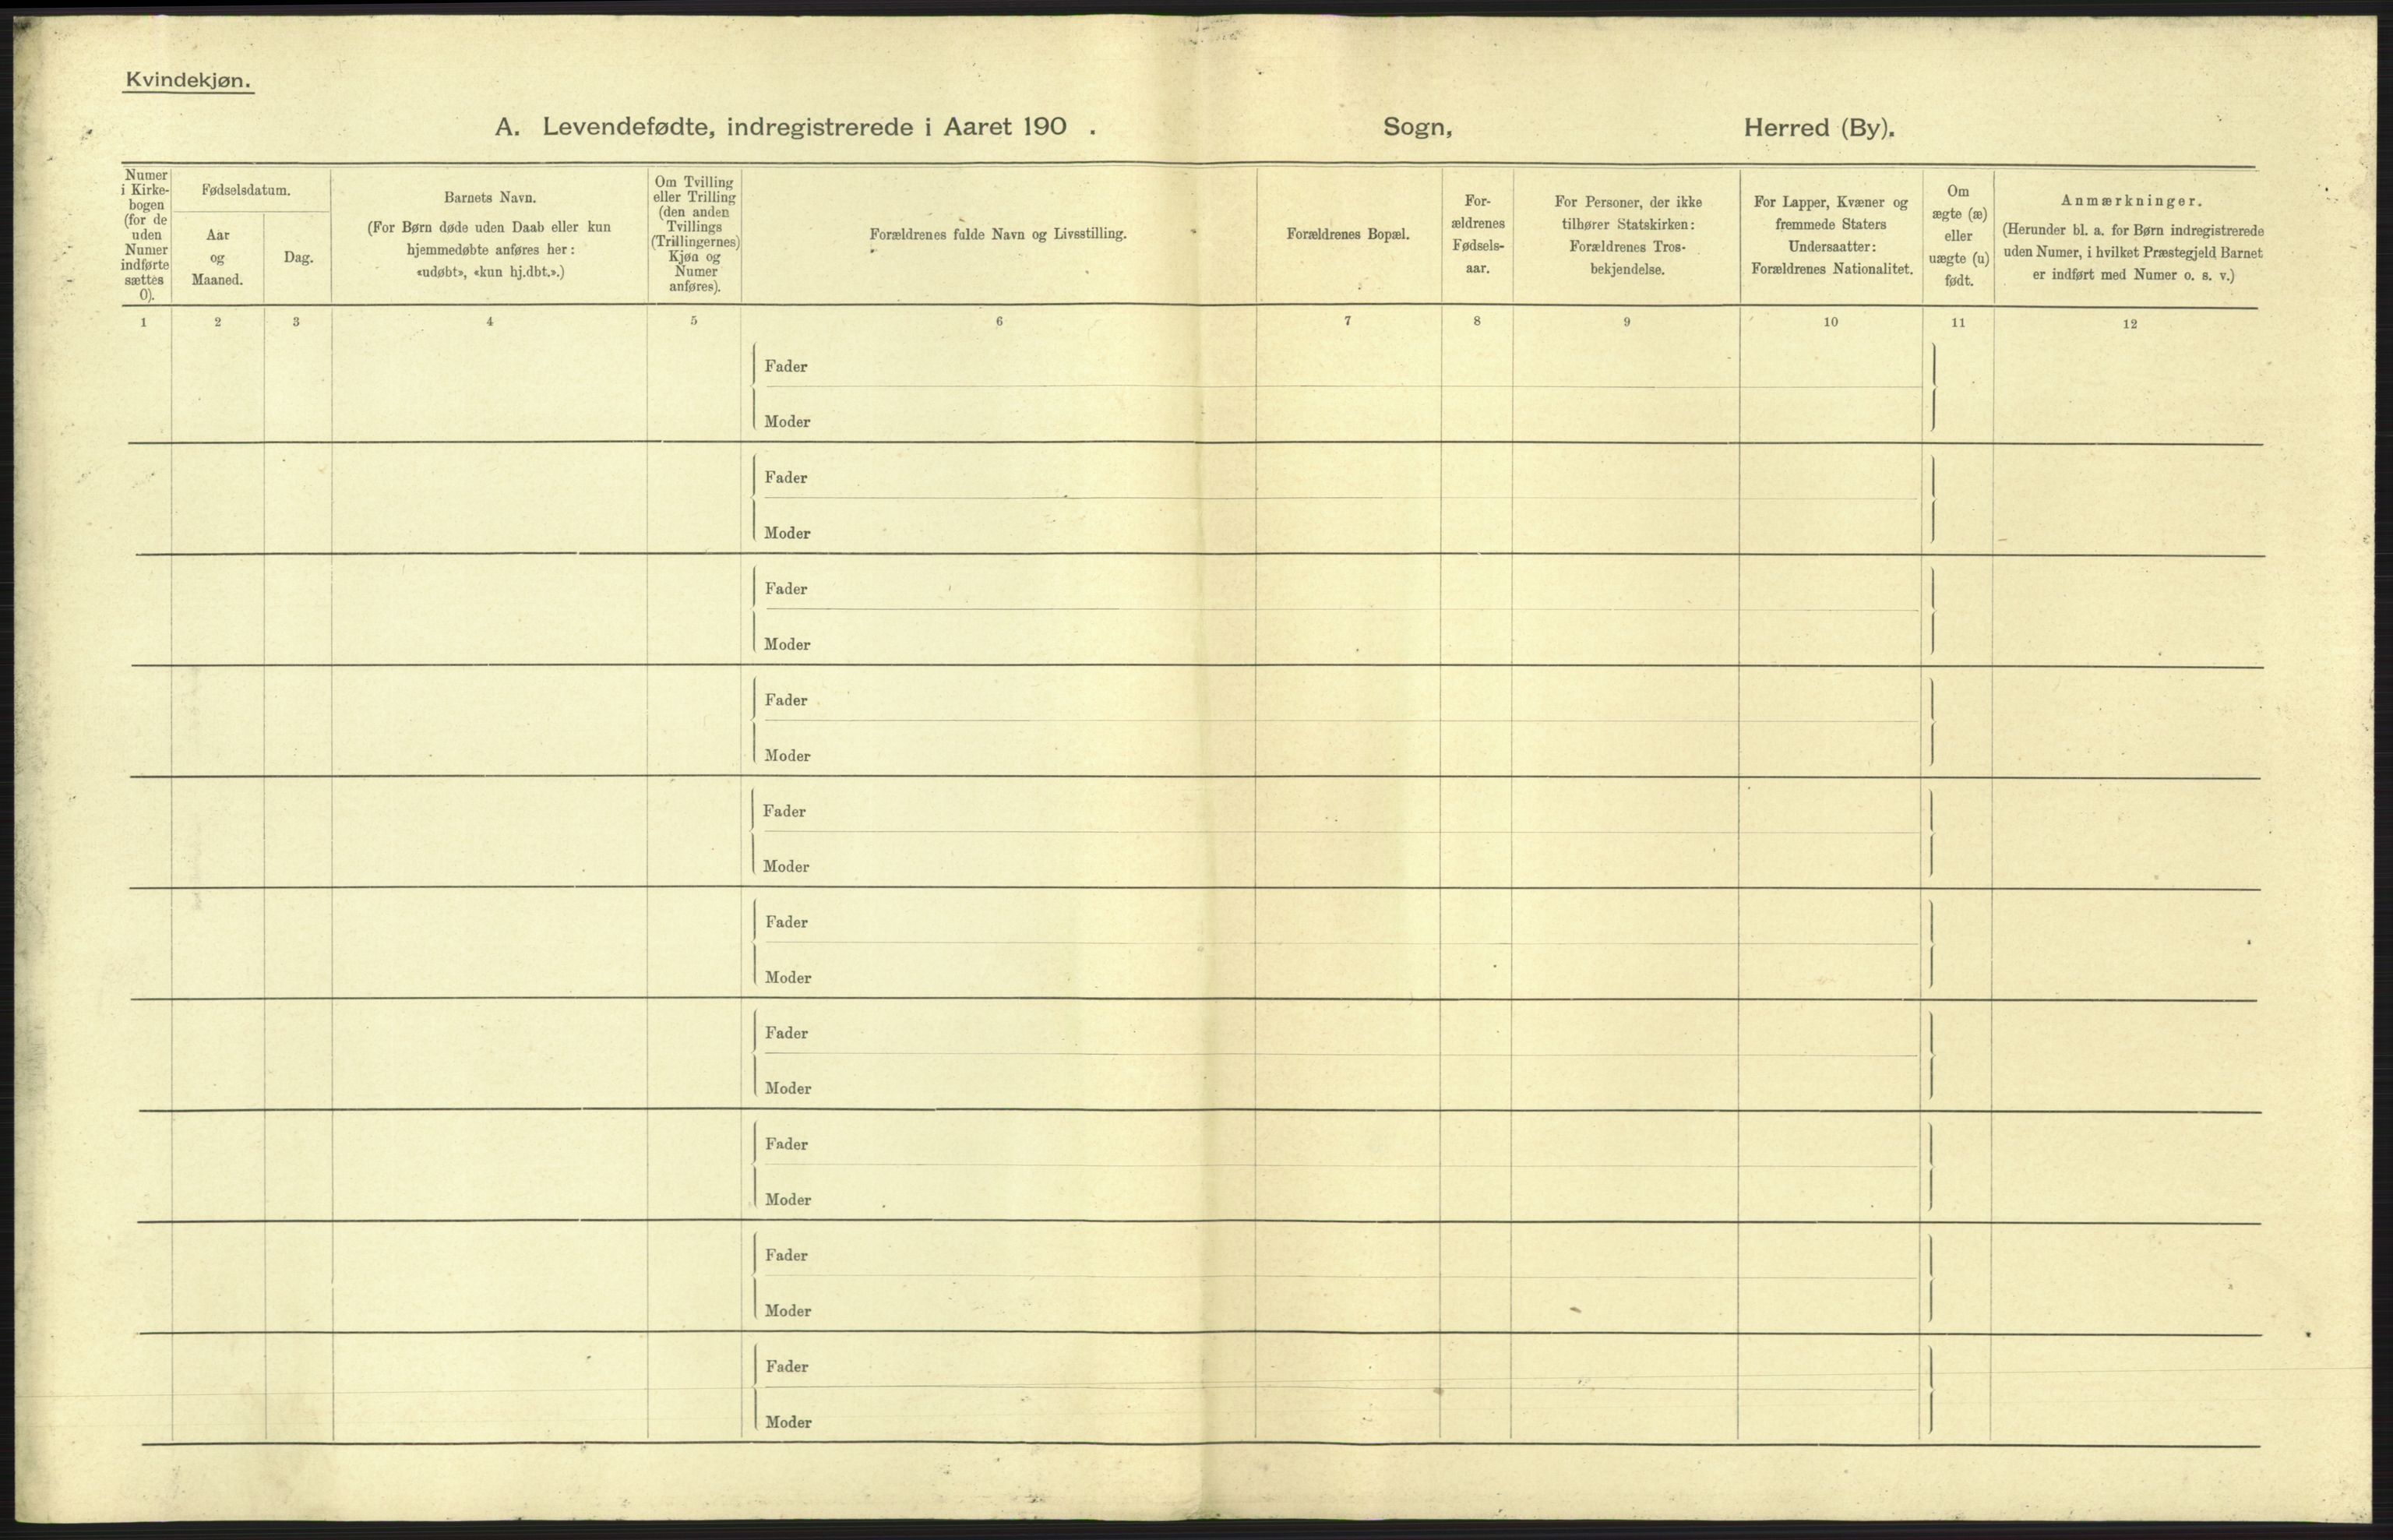 Kvindekjøn.
A. Levendefødte, indregistrerede i Aaret 190 . Sogn, Herred (By).
Numer
i Kirke-
bogen
(for de
uden
Numer
indførte
sættes
0).
Fødselsdatum.
Aar
og
Maaned.
Dag.
Barnets Navn.
(For Børn døde uden Daab eller kun
hjemmedøbte anføres her:
«udøbt», «kun hj.dbt.».)
Om Tvilling
eller Trilling
(den anden
Tvillings
(Trillingernes)
Kjøn og
Numer
anføres).
Forældrenes fulde Navn og Livsstilling.
Forældrenes Bopæl.
For-
ældrenes
Fødsels-
aar.
For Personer, der ikke
tilhører Statskirken:
Forældrenes Tros-
bekjendelse.
For Lapper, Kvæner og
fremmede Staters
Undersaatter:
Forældrenes Nationalitet.
Om
ægte (æ)
eller
uægte (u)
født.
Anmærkninger.
(Herunder bl. a. for Børn indregistrerede
uden Numer, i hvilket Præstegjeld Barnet
er indført med Numer o. s. v.)
1 2 3 4 5 6 7 8 9 10 11 12
Fader
Moder
Fader
Moder
Fader
Moder
Fader
Moder
Fader
Moder
Fader
Moder
Fader
Moder
Fader
Moder
Fader
Moder
Fader
Moder